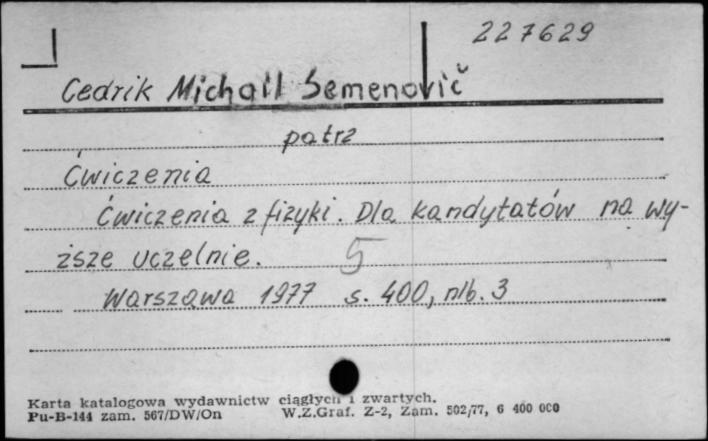 227629
Cedrik Michail Semenovič
patrz
Ćwiczenia
Ćwiczenia z fizyki. Dla kandytatów na wy-
ższe uczelnie. 5
Warszawa 1977 s. 400, nlb. 3
Karta katalogowa wydawnictw ciągłych i zwartych.
Pu-B-144 zam. 567/DW/On W.Z.Graf. Z-2, Zam. 502/77, 6 400 000